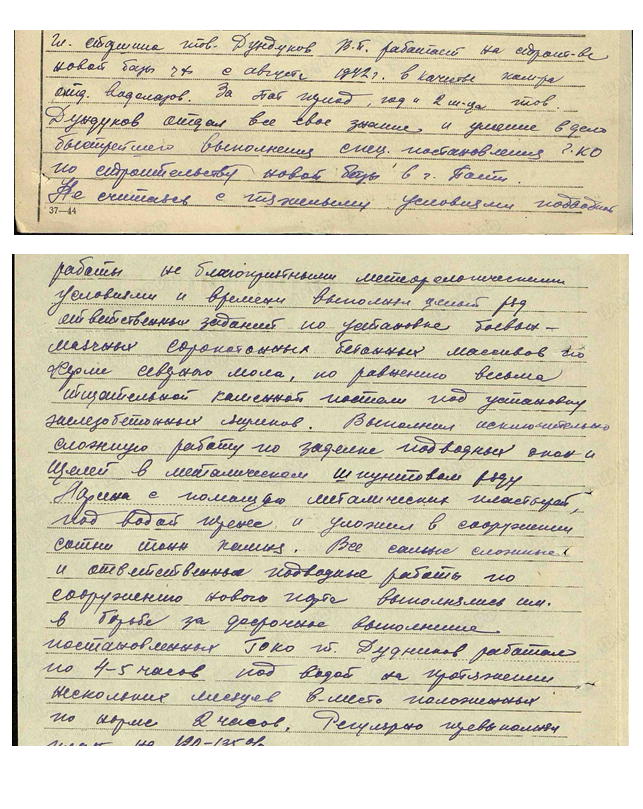 Гл. старшина тов. Дундуков В.П. работает на строит-ве
новой базы ЧФ с августа 1942 г. в качестве
отд. водолазов. За этот период, год и 2 м-ца тов.
Дундуков отдал все свое знание и умение в дело
быстрейшего выполнения спец. постановления ГКО
по строительству новой базы в г. Поти.
Не считаясь с тяжелыми условиями подводной
37—44
работы не благоприятными метеорологическими
условиями и времени выполнил целый ряд
ответственных заданий по установке
сорокатонных бетонных массивов по
северного мола, по равнению весьма
тщательной каменной постели под установку
железобетонных ящиков. Выполнил исключительно
сложную работу по заделке подводных окон и
щелей в металическом шпунтовом ряду
с помощью металических пластырей,
под водой и уложил в сооружении
сотни тонн камня. Все самые сложные
и ответственные подводные работы по
сооружению нового порта выполнялись им.
в борьбе за досрочное выполнение
постановлений ГОКО т. Дудников работал
по 4-5 часов под водой на протяжении
нескольких месяцев в-место положенных
по норме 2 часов. Регулярно перевыполнял
на 120-135%